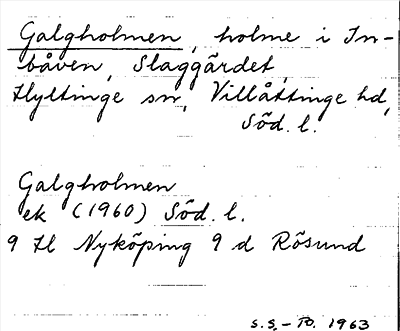 Galgholmen, holme i In-
båven, Slaggärdet,
Hyltinge sn, Villåttinge hd,
Söd. l.
Galgholmen
ek (1960) Söd. l.
9 H Nyköping 9 d Rösund
S.S. – 1963